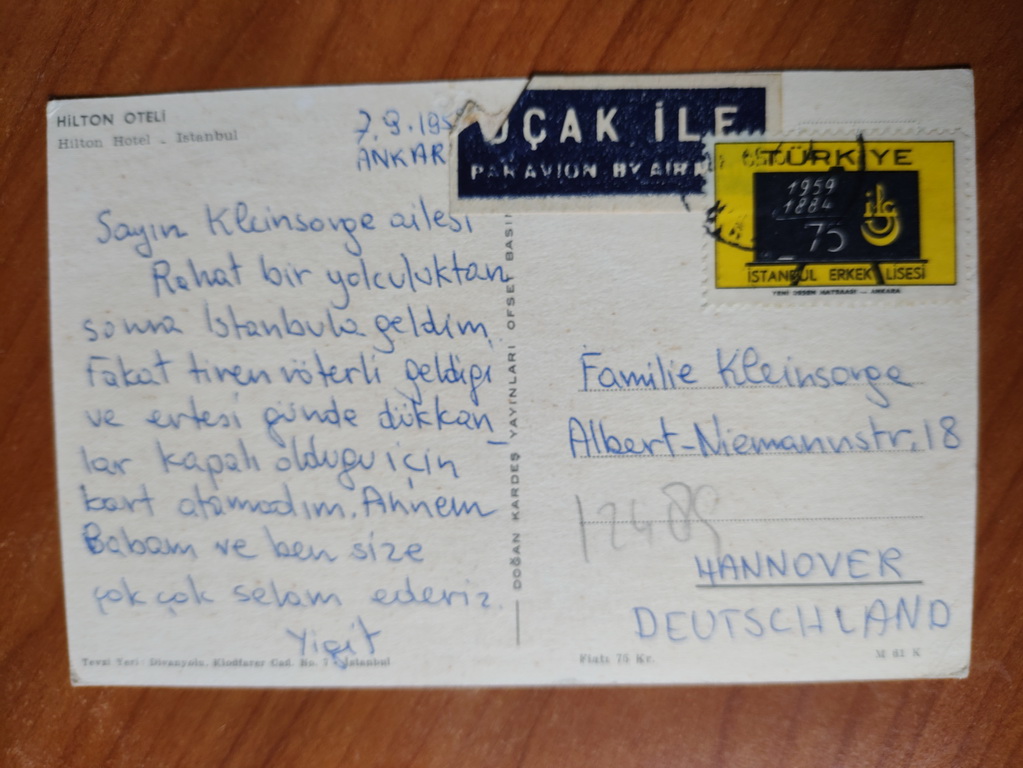 HİLTON OTELİ
Hilton Hotel - Istanbul
7.9.195
ANKAR
Sayın Kleinsorge ailesi
Rahat bir yolculuktan
sonra İstanbula geldim.
Fakat tiren röterli geldigi
ve ertesi günde dükkan_
lar kapalı oldugu için
kart atamadım. Annem
Babam ve ben size
çok çok selam ederiz.
Yigit
Tevzi Yeri: Divanyolu, Klodfarer Cad. No. 7 - Istanbul
DOĞAN KARDEŞ YAYINLARI OFSET BASIM
UÇAK İLE
PAR AVION BY AIR M
TÜRKİYE
1959
1884
75
İSTANBUL ERKEK LİSESİ
YENİ DESEN MATBAASI - ANKARA
Familie Kleinsorge
Albert-Niemannstr. 18
12489
HANNOVER
DEUTSCHLAND
Fiatı 75 Kr.
M 61 K